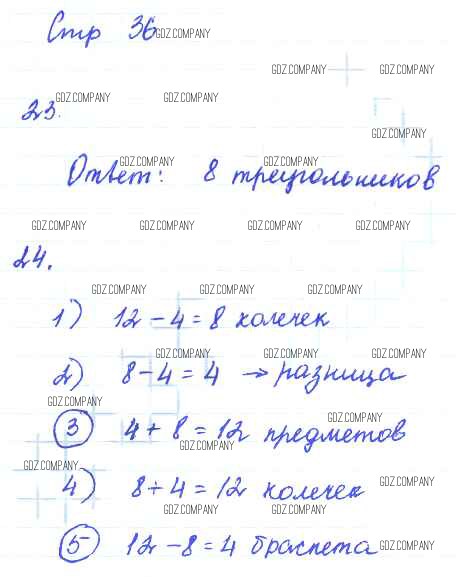 Стр 36 GDZ.COMPANY
GDZ.COMPANY GDZ.COMPANY
GDZ.COMPANY GDZ.COMPANY
23.
GDZ.COMPANY GDZ.COMPANY
Ответ: 8 треугольников
GDZ.COMPANY GDZ.COMPANY GDZ.COMPANY GDZ.COMPANY
24.
GDZ.COMPANY GDZ.COMPANY GDZ.COMPANY
1) 12 - 4 = 8 колечек
GDZ.COMPANY GDZ.COMPANY GDZ.COMPANY
2) 8 - 4 = 4 → разница
GDZ.COMPANY
GDZ.COMPANY
3 4 + 8 = 12 предметов
GDZ.COMPANY
GDZ.COMPANY
4) 8 + 4 = 12 колечек GDZ.COMPANY
GDZ.COMPANY GDZ.COMPANY
5 12 - 8 = 4 браслета GDZ.COMPANY